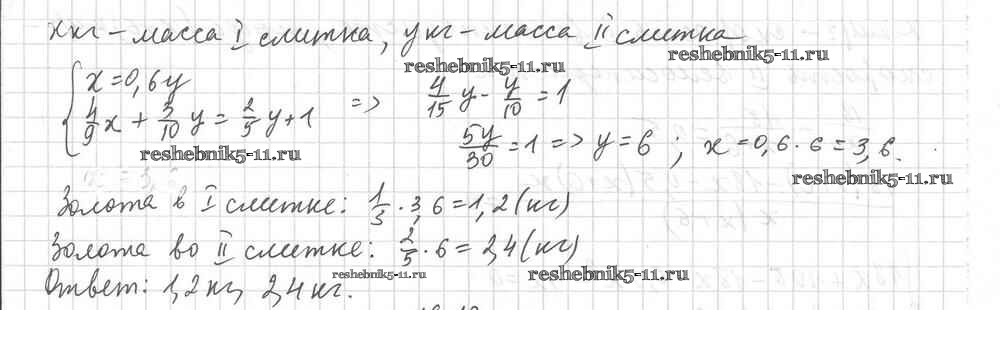 x кг – масса I слитка, y кг – масса II слитка
reshebnik5-11.ru reshebnik5-11.ru
{ x = 0,6y
4/9 x + 3/10 y = 2/5 y + 1 => 4/15 y - y/10 = 1
5y/30 = 1 => y = 6 ; x = 0,6 · 6 = 3,6.
reshebnik5-11.ru reshebnik5-11.ru
Золота в I слитке: 1/3 · 3,6 = 1,2 (кг)
Золота во II слитке: 2/5 · 6 = 2,4 (кг)
reshebnik5-11.ru reshebnik5-11.ru
Ответ: 1,2 кг, 2,4 кг.